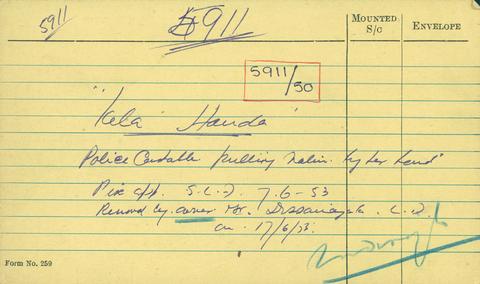 5911
5911
MOUNTED
S/C
ENVELOPE
5911/50
"Kela Handa"
Police Constable pulling by her hand"
Pix c/p. S.L.D. 7-6-53
Removed by owner Mr. Dissanayake. C.D.
on 17/6/53.
Form No. 259